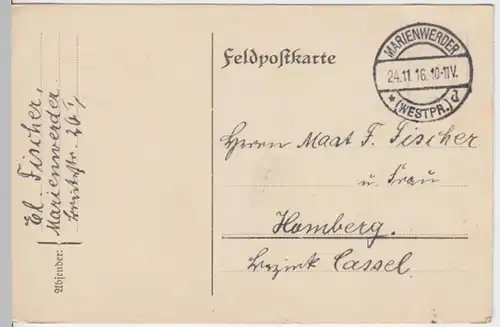 Feldpostkarte
MARIENWERDER
24.11.16.10-11V.
* (WESTPR.) d
Herrn Maat F. Fischer
u. Frau
Homberg.
Bezirk Cassel.
Absender:
El. Fischer,
Marienwerder